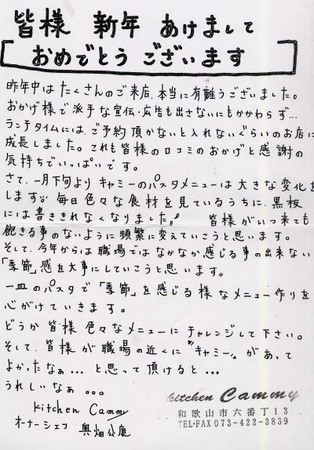 皆様 新年 あけまして
おめでとう ございます
昨年中は たくさんのご来店、本当に有難うございました。
おかげ様で派手な宣伝・広告も出さないにもかかわらず…
ランチタイムには、ご予約頂かないと入れないぐらいのお店に
成長しました。これも皆様のロコミのおかげと感謝の
気持ちでいっぱいです。
さて、一月下旬より キャミーのパスタメニューは大きな変化を
します♪ 毎日色々な食材を見ているうちに、黒板
には書ききれなくなりました。 皆様がいつ来ても
飽きる事のないように頻繁に変えていこうと思います。
そして、今年からは職場ではなかなか感じる事の出来ない
「季節」感を大事にしていこうと思います。
一皿のパスタで「季節」を感じる様なメニュー作りを
心がけていきます。
どうか皆様 色々なメニューに チャレンジして下さい。
そして、皆様が職場の近くに "キャミー"があって
よかったなぁ... と思って頂けると...
うれしいなぁ 。。。
Kitchen Cammy
オーナーシェフ 奥畑公康
kitchen Cammy
和歌山市六番丁13
TEL・FAX 073-422-3839